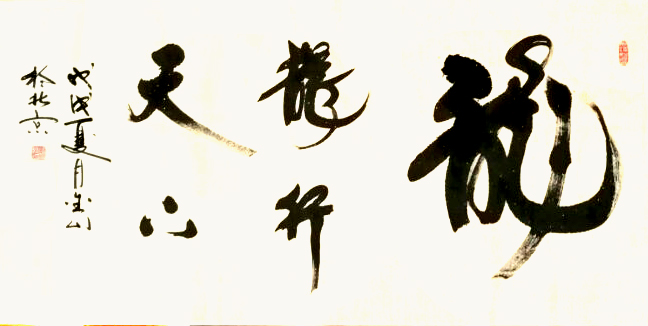 龍
龍行
天下
戊戌夏月金山
於北京